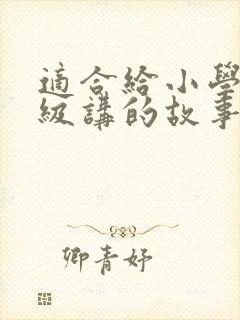 適合給小學
級講的故事
卿青妤